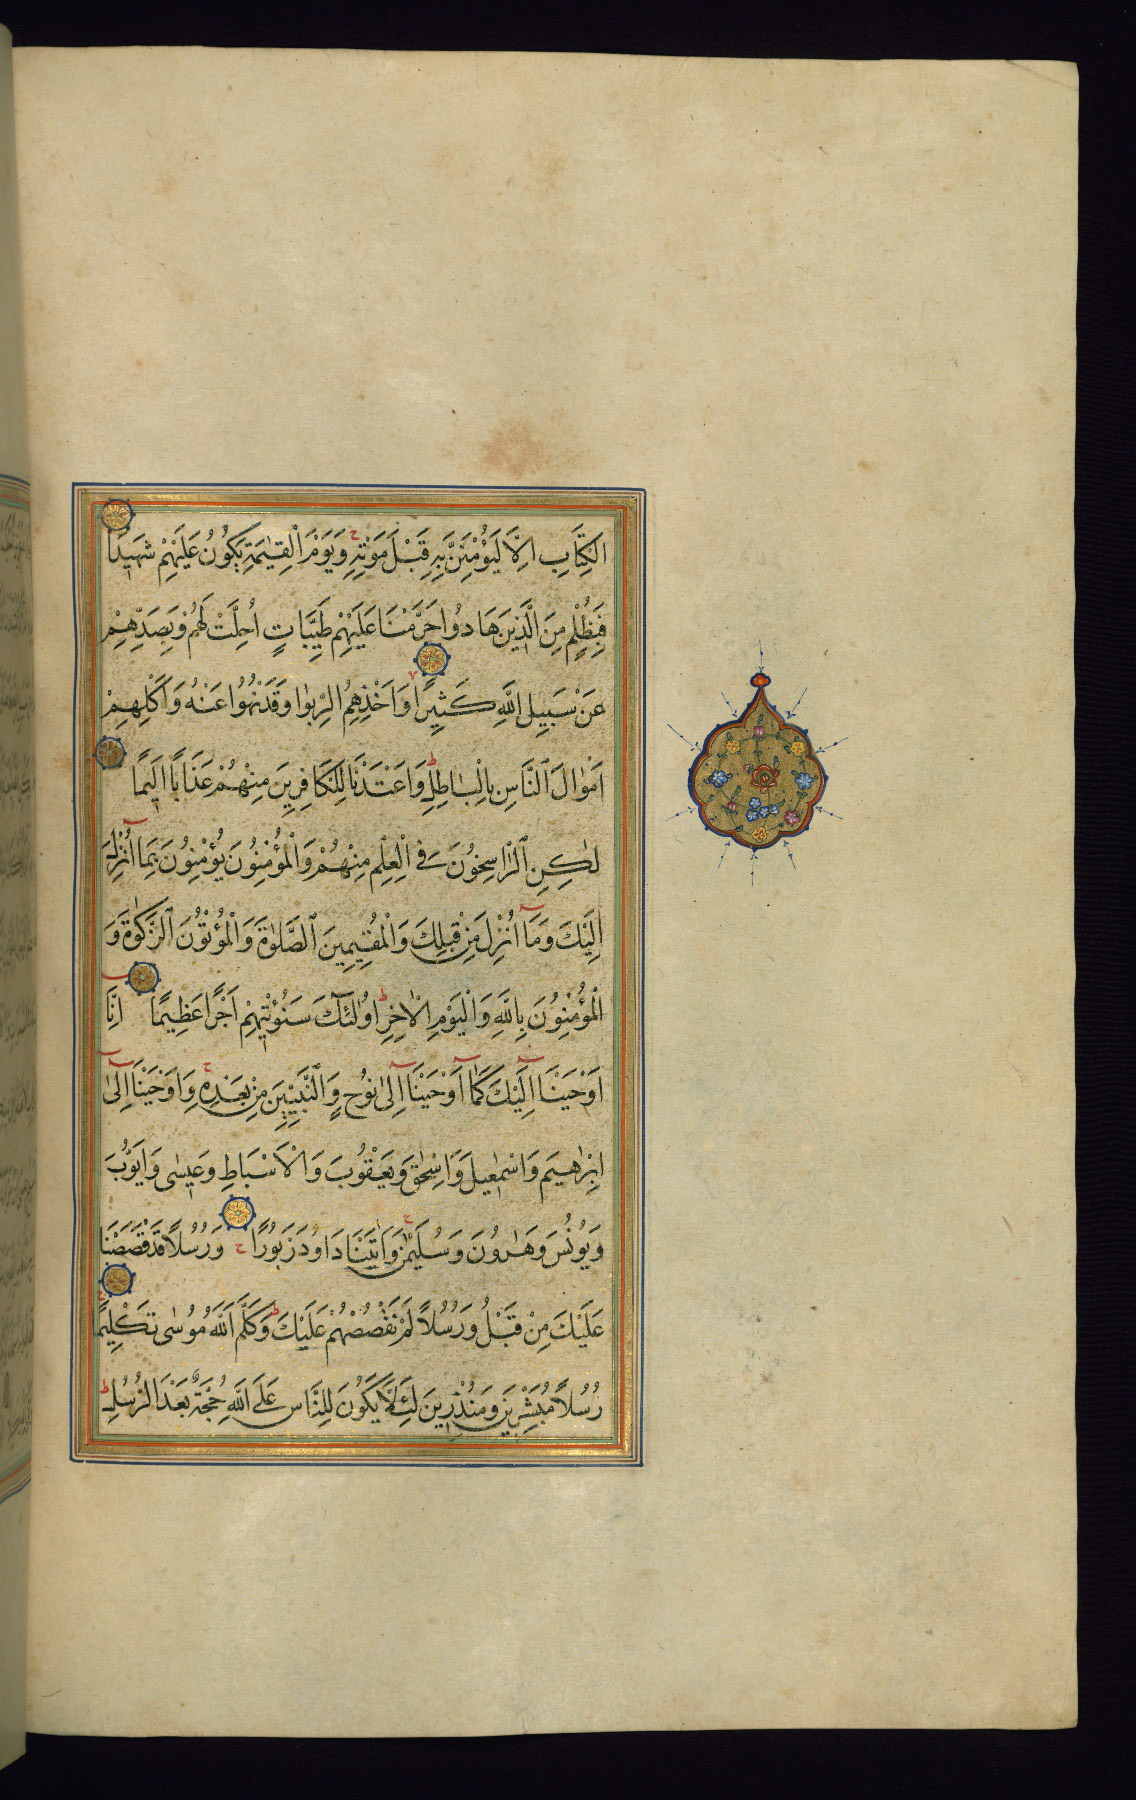 الْكِتَابِ اِلَّا لَيُؤْمِنَنَّ بِهِ قَبْلَ مَوْتِهِ ح وَيَوْمَ الْقِيٰمَةِ يَكُونُ عَلَيْهِمْ شَهِيدًا
فَبِظُلْمٍ مِنَ الَّذِينَ هَادُوا حَرَّمْنَا عَلَيْهِمْ طَيِّبَاتٍ اُحِلَّتْ لَهُمْ وَبِصَدِّهِمْ
عَنْ سَبِيلِ اللَّهِ كَثِيرًا وَاَخْذِهِمُ الرِّبٰوا وَقَدْ نُهُوا عَنْهُ وَاَكْلِهِمْ
اَمْوٰالَ النَّاسِ بِالْبٰاطِلِ ط وَاَعْتَدْنَا لِلْكَافِرِينَ مِنْهُمْ عَذَابًا اَلِيمًا
لٰكِنِ الرَّاسِخُونَ فِي الْعِلْمِ مِنْهُمْ وَالْمُؤْمِنُونَ يُؤْمِنُونَ بِمَا اُنْزِلَ
اِلَيْكَ وَمَا اُنْزِلَ مِنْ قَبْلِكَ وَالْمُقِيمِينَ الصَّلٰوةَ وَالْمُؤْتُونَ الزَّكٰوةَ وَ
الْمُؤْمِنُونَ بِاللَّهِ وَالْيَوْمِ الْاٰخِرِ ط اُولٰئِكَ سَنُؤْتِيهِمْ اَجْرًا عَظِيمًا اِنَّا
اَوْحَيْنَا اِلَيْكَ كَمَا اَوْحَيْنَا اِلٰى نُوحٍ وَالنَّبِيِّينَ مِنْ بَعْدِهِ ح وَاَوْحَيْنَا اِلٰى
اِبْرٰهِيمَ وَاِسْمٰعِيلَ وَاِسْحٰقَ وَيَعْقُوبَ وَالْاَسْبَاطِ وَعِيسٰى وَاَيُّوبَ
وَيُونُسَ وَهٰرُونَ وَسُلَيْمٰنَ ح وَاٰتَيْنَا دَاوُدَ زَبُورًا ح وَرُسُلًا قَدْ قَصَصْنَا
عَلَيْكَ مِنْ قَبْلُ وَرُسُلًا لَمْ نَقْصُصْهُمْ عَلَيْكَ ط وَكَلَّمَ اللَّهُ مُوسٰى تَكْلِيمًا
رُسُلًا مُبَشِّرِينَ وَمُنْذِرِينَ لِئَلَّا يَكُونَ لِلنَّاسِ عَلَى اللَّهِ حُجَّةٌ بَعْدَ الرُّسُلِ ط